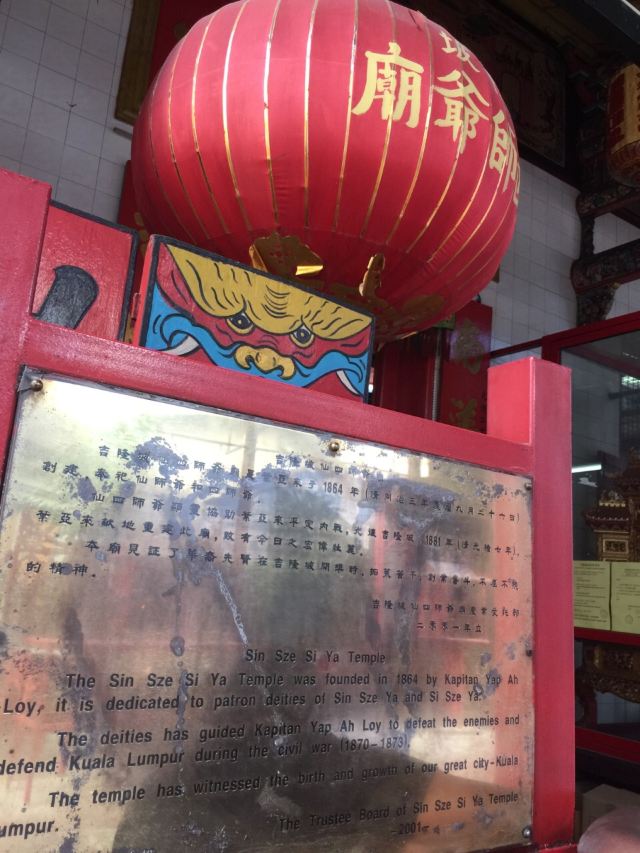 坡
師爺廟
吉隆坡仙四師爺廟
吉隆坡仙四師爺廟是葉亞來于 1864 年 (清同治三年 九月二十六日)
創建，奉祀仙師爺和四師爺。
仙四師爺顯靈協助葉亞來平定內戰，光復吉隆坡，1881 年 (清光緒七年)，
葉亞來獻地重建此廟，故有今日之宏偉 麗。
本廟見証了華裔先賢在吉隆坡開埠時，拓荒苦干，創業奮斗，不屈不撓
的精神。
吉隆坡仙四師爺廟產業受託部
二零零一年立
Sin Sze Si Ya Temple
The Sin Sze Si Ya Temple was founded in 1864 by Kapitan Yap Ah
Loy, it is dedicated to patron deities of Sin Sze Ya and Si Sze Ya.
The deities has guided Kapitan Yap Ah Loy to defeat the enemies and
defend Kuala Lumpur during the civil war (1870-1873).
The temple has witnessed the birth and growth of our great city-Kuala
umpur.
The Trustee Board of Sin Sze Si Ya Temple
-2001-